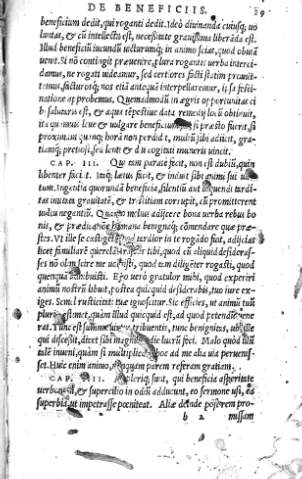 DE BENEFICIIS. 89
beneficium dedit, qui roganti dedit. Ideo diuinanda cuiusq; uo
luntas, & cũ intellecta est, necessitate grauissima liberãda est.
Illud beneficiũ iucundũ uicturumq; in animo scias, quod obuiã
uenit. Si nõ contingit præuenire, plura rogantis uerba interci
damus, ne rogati uideamur, sed certiores facti statim promit
tamus, facturosq; nos etiã antequã interpellaremur, ipsa festi
natione approbemus. Quemadmodũ in ægris opportunitas ci
bi salutaris est, & aqua tẽpestiue data remedij locũ obtinuit,
ita quamuis leue & uulgare beneficium sit, si præsto fuerit, si
proximam quamq; horã non perdidit, multũ sibi adijcit, gra
tiamq; preciosi, sed lenti & diu cogitati muneris uincit.
CAP. III. Qui tam parate fecit, non est dubiũ, quin
libenter faciat. Itaq; lætus facit, & induit sibi animi sui uul
tum. Ingentia quorundã beneficia, silentiũ aut loquendi tardi
tas imitata grauitatẽ, & tristitiam corrupit, cũ promitterent
uultu negantiũ. Quanto melius adijcere bona uerba rebus bo
nis, & prædicatione humana benignaq; cõmendare quæ præ
stes. Vt ille se castiget quod tardior in te rogãdo fuit, adijcias
licet familiarẽ querelã: Irascor tibi, quod cũ aliquid desideras
ses nõ olim scire me uoluisti, quod tam diligẽter rogasti, quod
quenquã adhibuisti. Ego uero gratulor mihi, quod experiri
animũ nostrũ libuit, postea quicquid desiderabis, tuo iure ex
iges. Semel rusticitati tuæ ignoscitur. Sic efficies, ut animũ tuũ
pluris æstimet, quàm illud quicquid est, ad quod petendũ uene
rat. Tunc est summa uirtus tribuentis, tunc benignitas, ubi ille
qui discessit, dicet sibi: magnũ hodie lucrũ feci. Malo quòd illũ
talẽ inueni, quàm si multiplicatũ hoc ad me alia uia peruenis
set. Huic enim animo, nunquam parem referam gratiam.
CAP. IIII. Pleriq; sunt, qui beneficia asperitate
uerborum, & supercilio in odiũ adducunt, eo sermone usi, ea
superbia, ut impetrasse pœniteat. Aliæ deinde post rem pro-
b 2 missam